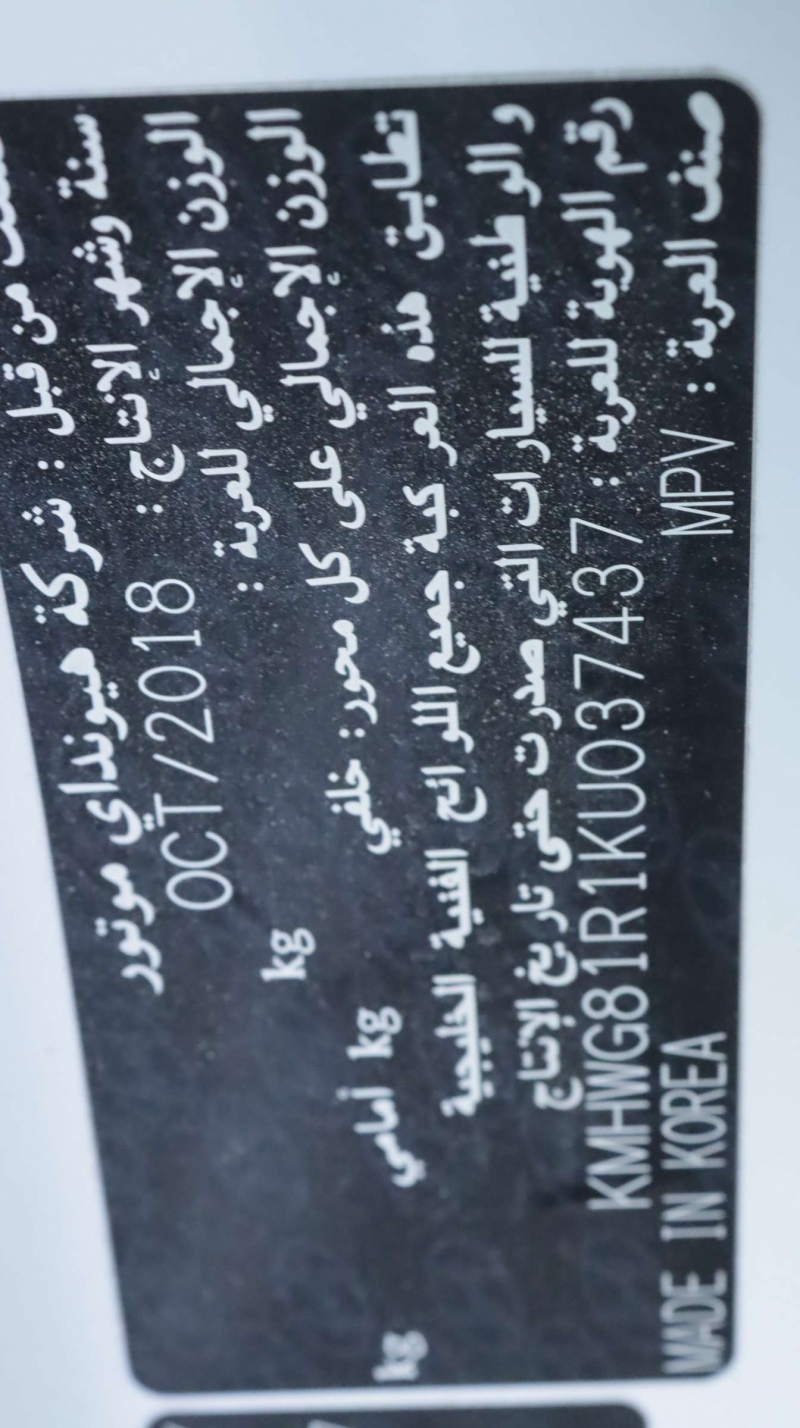 صنعت من قبل : شركة هيونداي موتور
سنة وشهر الإنتاج : OCT/2018
الوزن الإجمالي للعربة : kg
الوزن الإجمالي على كل محور: خلفي kg أمامي kg
تطابق هذه العر كبة جميع اللوائح الفنية الخليجية
والوطنية للسيارات التي صدرت حتى تاريخ الإنتاج
رقم الهوية للعربة : KMHWG81R1KU037437
صنف العربة : MPV MADE IN KOREA